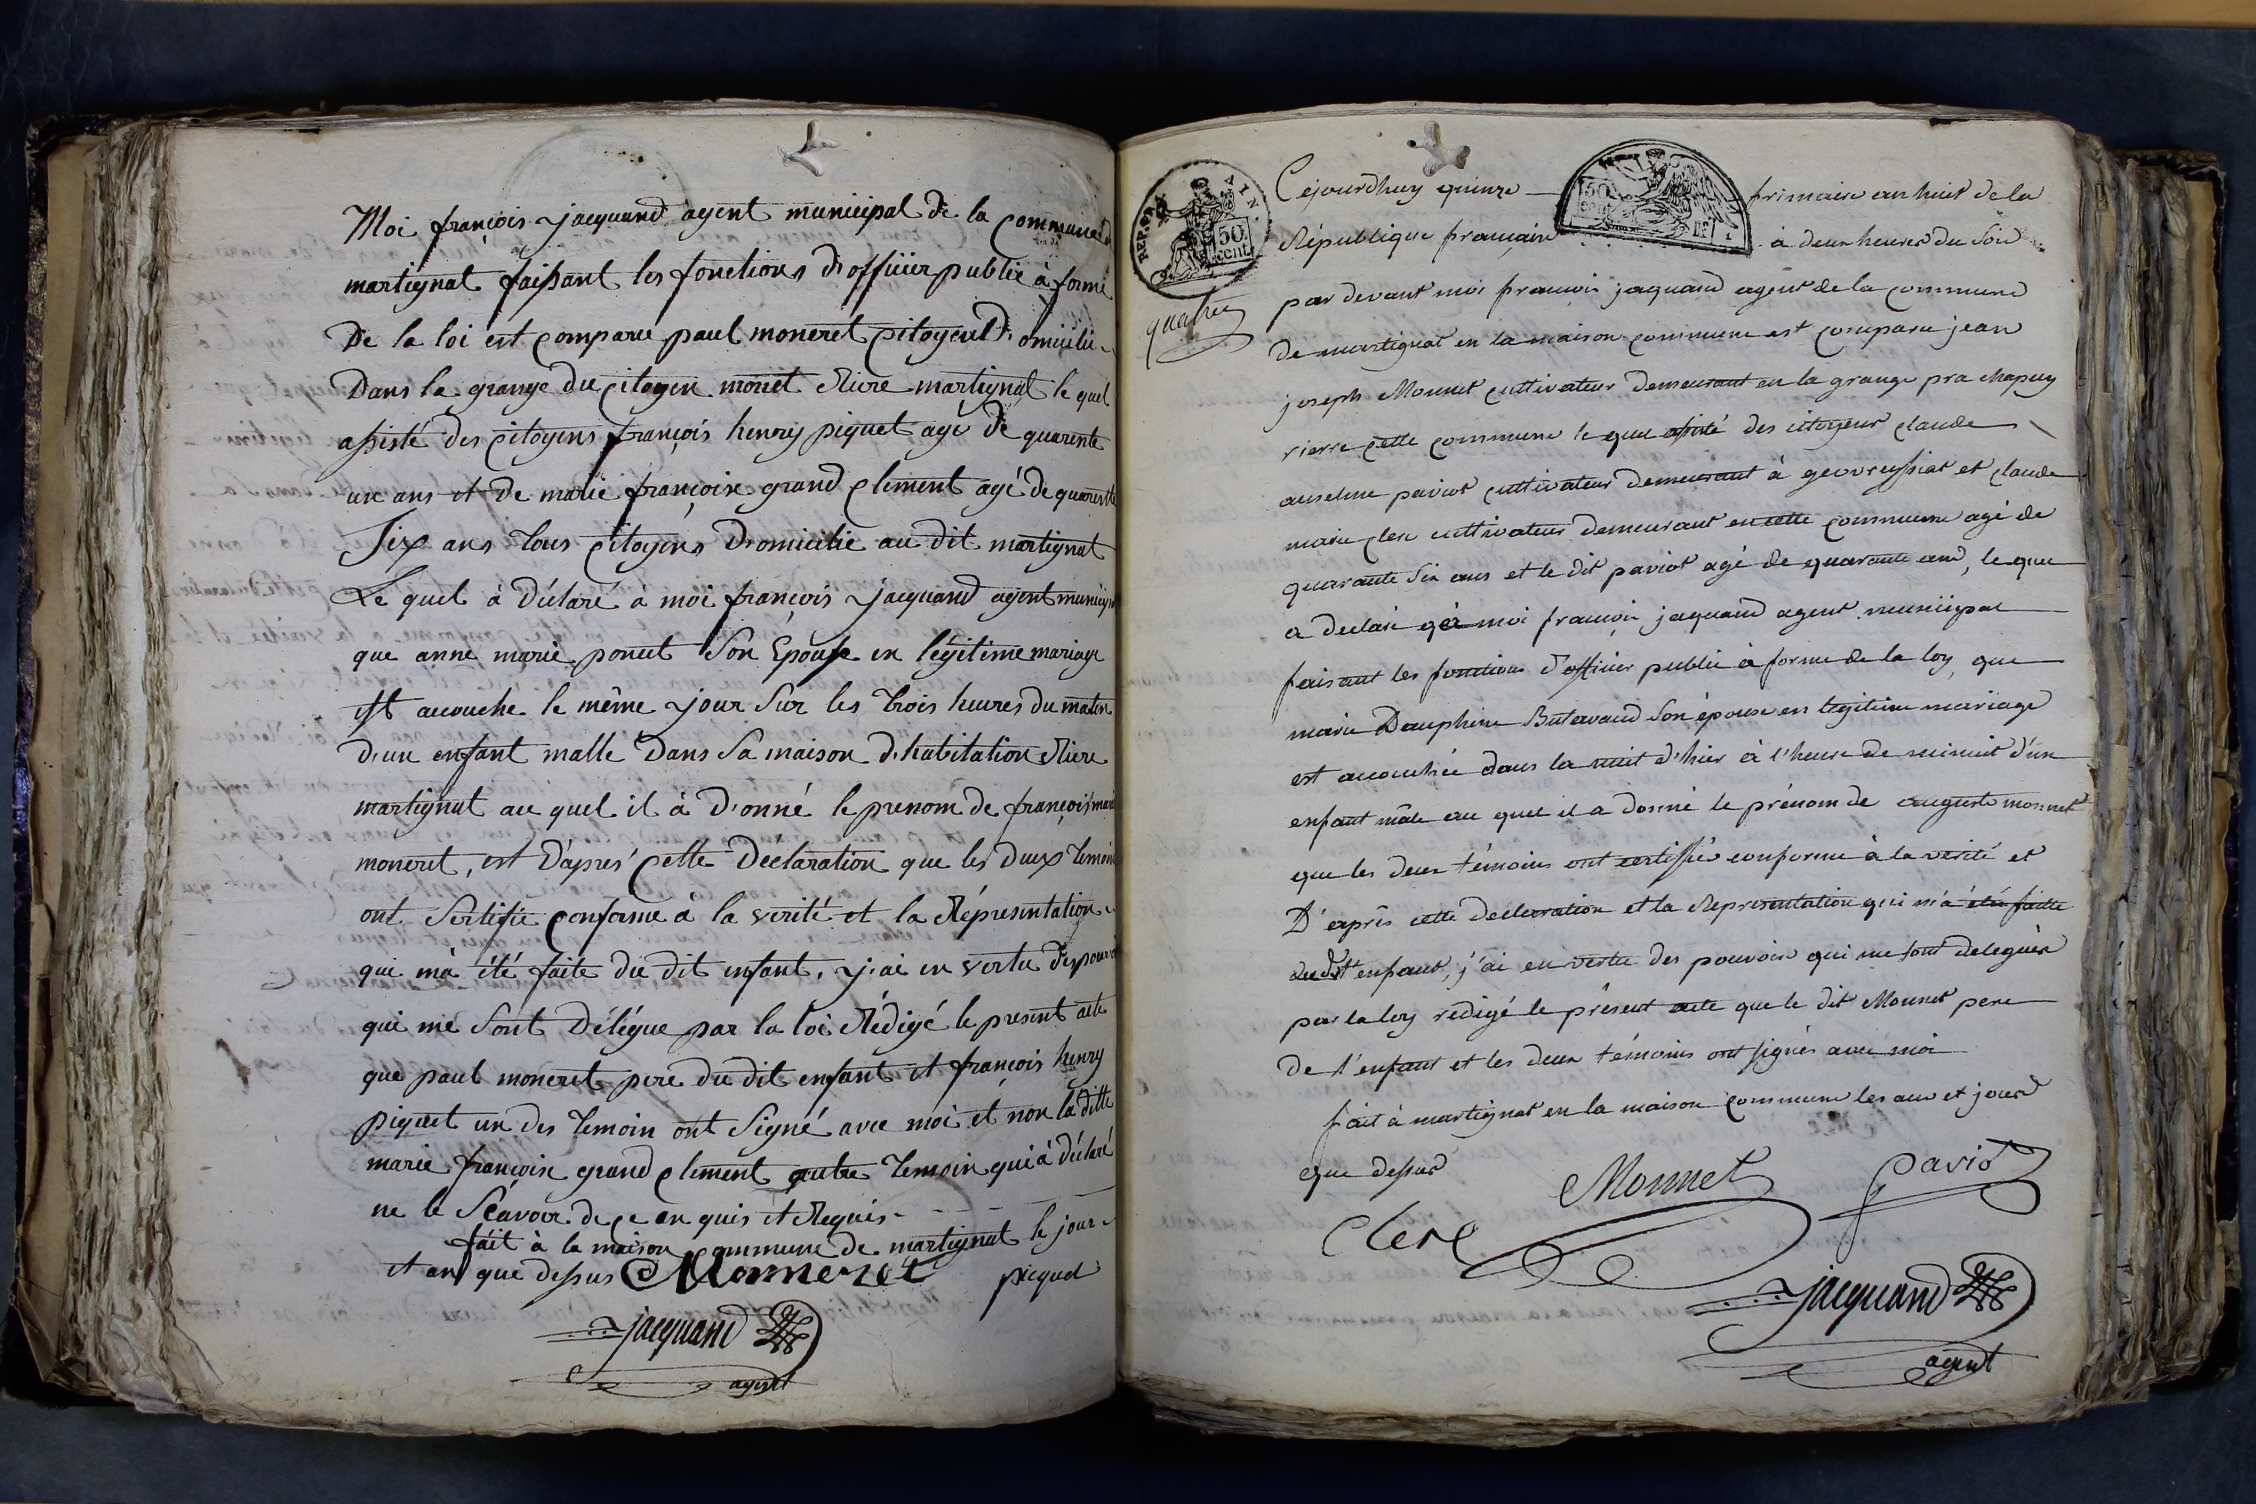 Moi françois jacquand agent municipal de la commune de
martignat faisant les fonctions d'officier public à forme
De la loi est comparu paul moneret citoyent Domicilie
Dans la grange du citoyen monet Riere martignat le quel
assisté des citoyens françois henry piquet agé de quarente
un ans et de marie françoise grand clement agé de quarente
Six ans tous citoyens Domicilie au dit martignat
Le quel à déclaré à moi françois jacquand agent municip
que anne marie ponnet Son Epouse en légitime mariage
est acouche le même jour Sur les trois heures du matin
d'un enfant malle Dans Sa maison d'habitation Riere
martignat au quel il à D'onné le prenom de françois mari
moneret, est D'apres cette Déclaration que les Deux temoin
ont Sertifie conforme à la verité et la Représentation
qui m'à été faite du dit enfant, j'ai en vertu des pouvoi
qui me Sont Délégue par la loi Rédigé le present acte
que paul moneret pere du dit enfant et françois henry
piquet un des temoin ont Signé avec moi et non la ditte
marie françoise grand clement autre temoin qui à déclaré
ne le Scavoir de ce en quis et Requis
fait à la maison commune de martignat le jour
et an que dessus Monneret picquet
jacquand
agent
REP. FRA. AIN.
50 cent.
quatre
Cejourdhuy quinze frimaire an huit de la
République française à deux heures du Soir
50 cent.
par devant moi françois jaquand agent de la commune
de martignat en la maison commune est comparu jean
joseph Monnet cultivateur demeurant en la grange pra chapuy
rierre cette commune le quel assisté des citoyens claude
anselme paviot cultivateur demeurant à geovreissiat et claude
marie clerc cultivateur demeurant en cette commune agé de
quarante Six ans et le dit paviot agé de quarante ans, le quel
a declaré q à moi françois jaquand agent municipal
faisant les fonctions d'officier public à forme de la loy, que
marie Dauphine Butavand Son épouse en legitime mariage
est accouchée dans la nuit d'hier à l'heure de minuit d'un
enfant mâle au quel il a donné le prénom de auguste monnet
que les deux témoins ont certiffié conforme à la verité et
D'après cette declaration et la Representation qui m'à été faitte
dudit enfant, j'ai en vertu des pouvoirs qui me sont delegués
par la loy redigé le présent acte que le dit Monnet pere
de l'enfant et les deux témoins ont signés avec moi
fait à martignat en la maison commune les an et jour
que dessus
Monnet paviot
Clerc
jacquand
agent